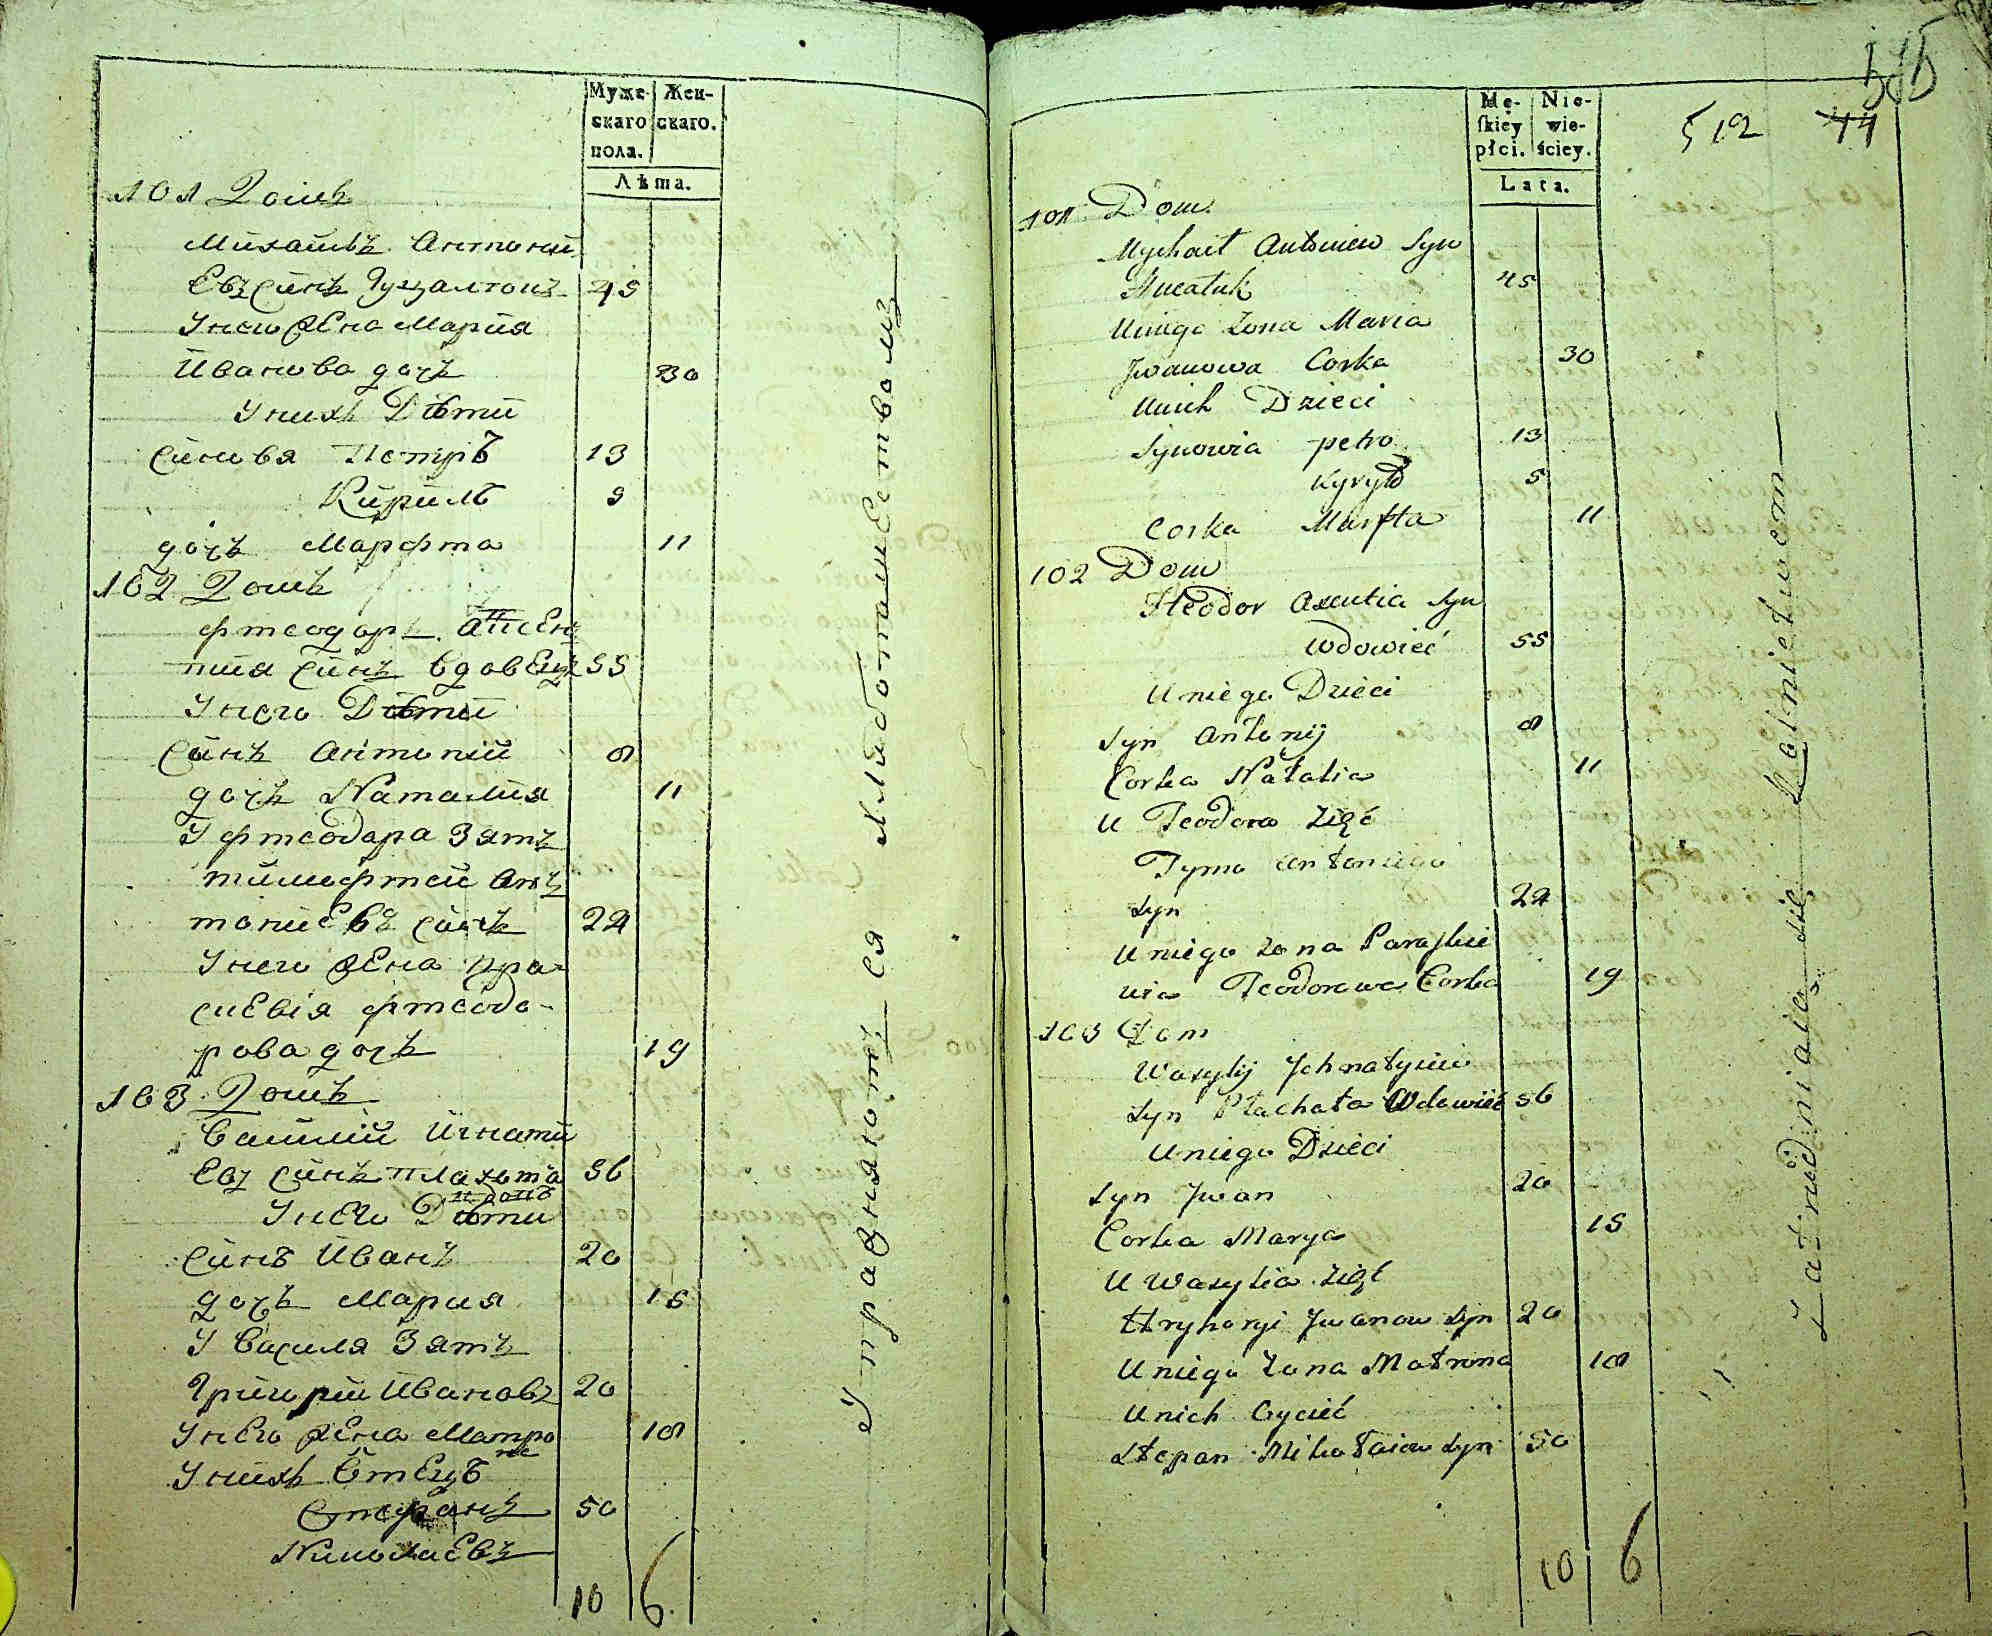 Муже- Жен-
скаго скаго.
пола.
Лѣта.
101 Домъ
Михаилъ Антоній
Евъ Синъ 45
У него жена Марія
Иванова дочъ 30
У нихъ Дѣти
Синовя Петръ 13
Кирилъ 9
дочъ Марфта 11
102 Домъ
Фтеодоръ
тия Синъ вдовецъ 55
У него Дѣти
Синъ Антоній 8
дочъ Наталия 11
У Фтеодора Зятъ
тимофтей Анъ
тониевъ Синъ 24
У него жена Пра
скевія Фтеодо-
рова дочъ 19
103 Домъ
Василій Игнати
Евъ Синъ плахъта 56
У него Дѣти
Синъ Иванъ 20
дочъ Мария 15
У Василя Зятъ
Григорій Ивановъ 20
У него жена Матро
на 18
У нихъ Отецъ
Стефанъ 50
Николаевъ
10 6
Упражняютъ ся хлѣбопашествомъ
Mę- Nie-
skiey wie-
płci. ściey.
Lata.
512 44
101 Dom
Mychaił Antoniew Syn
45
U niego Żona Maria
Jwanowa Corka 30
U nich Dzieci
Synowia petro 13
Kyryło 5
Corka Marfta 11
102 Dom
Fteodor Axentia Syn
wdowieć 55
U niego Dzieci
Syn Antonij 8
Corka Natalia 11
U Teodora Zięć
Tymo Antoniego
Syn 24
U niego Żona Paraskie
wia Teodorowa Corka 19
103 Dom
Wasylij Jehnatyiew
Syn Płachata Wdowieć 56
U niego Dzieci
Syn Jwan 20
Corka Marya 15
U Wasyla Zięć
Hryhoryi Jwanow Syn 20
U niego Żona Matrona 18
U nich Oycieć
Stepan Mikołaiew Syn 50
10 6
Zatrudniaią się Rolnictwem